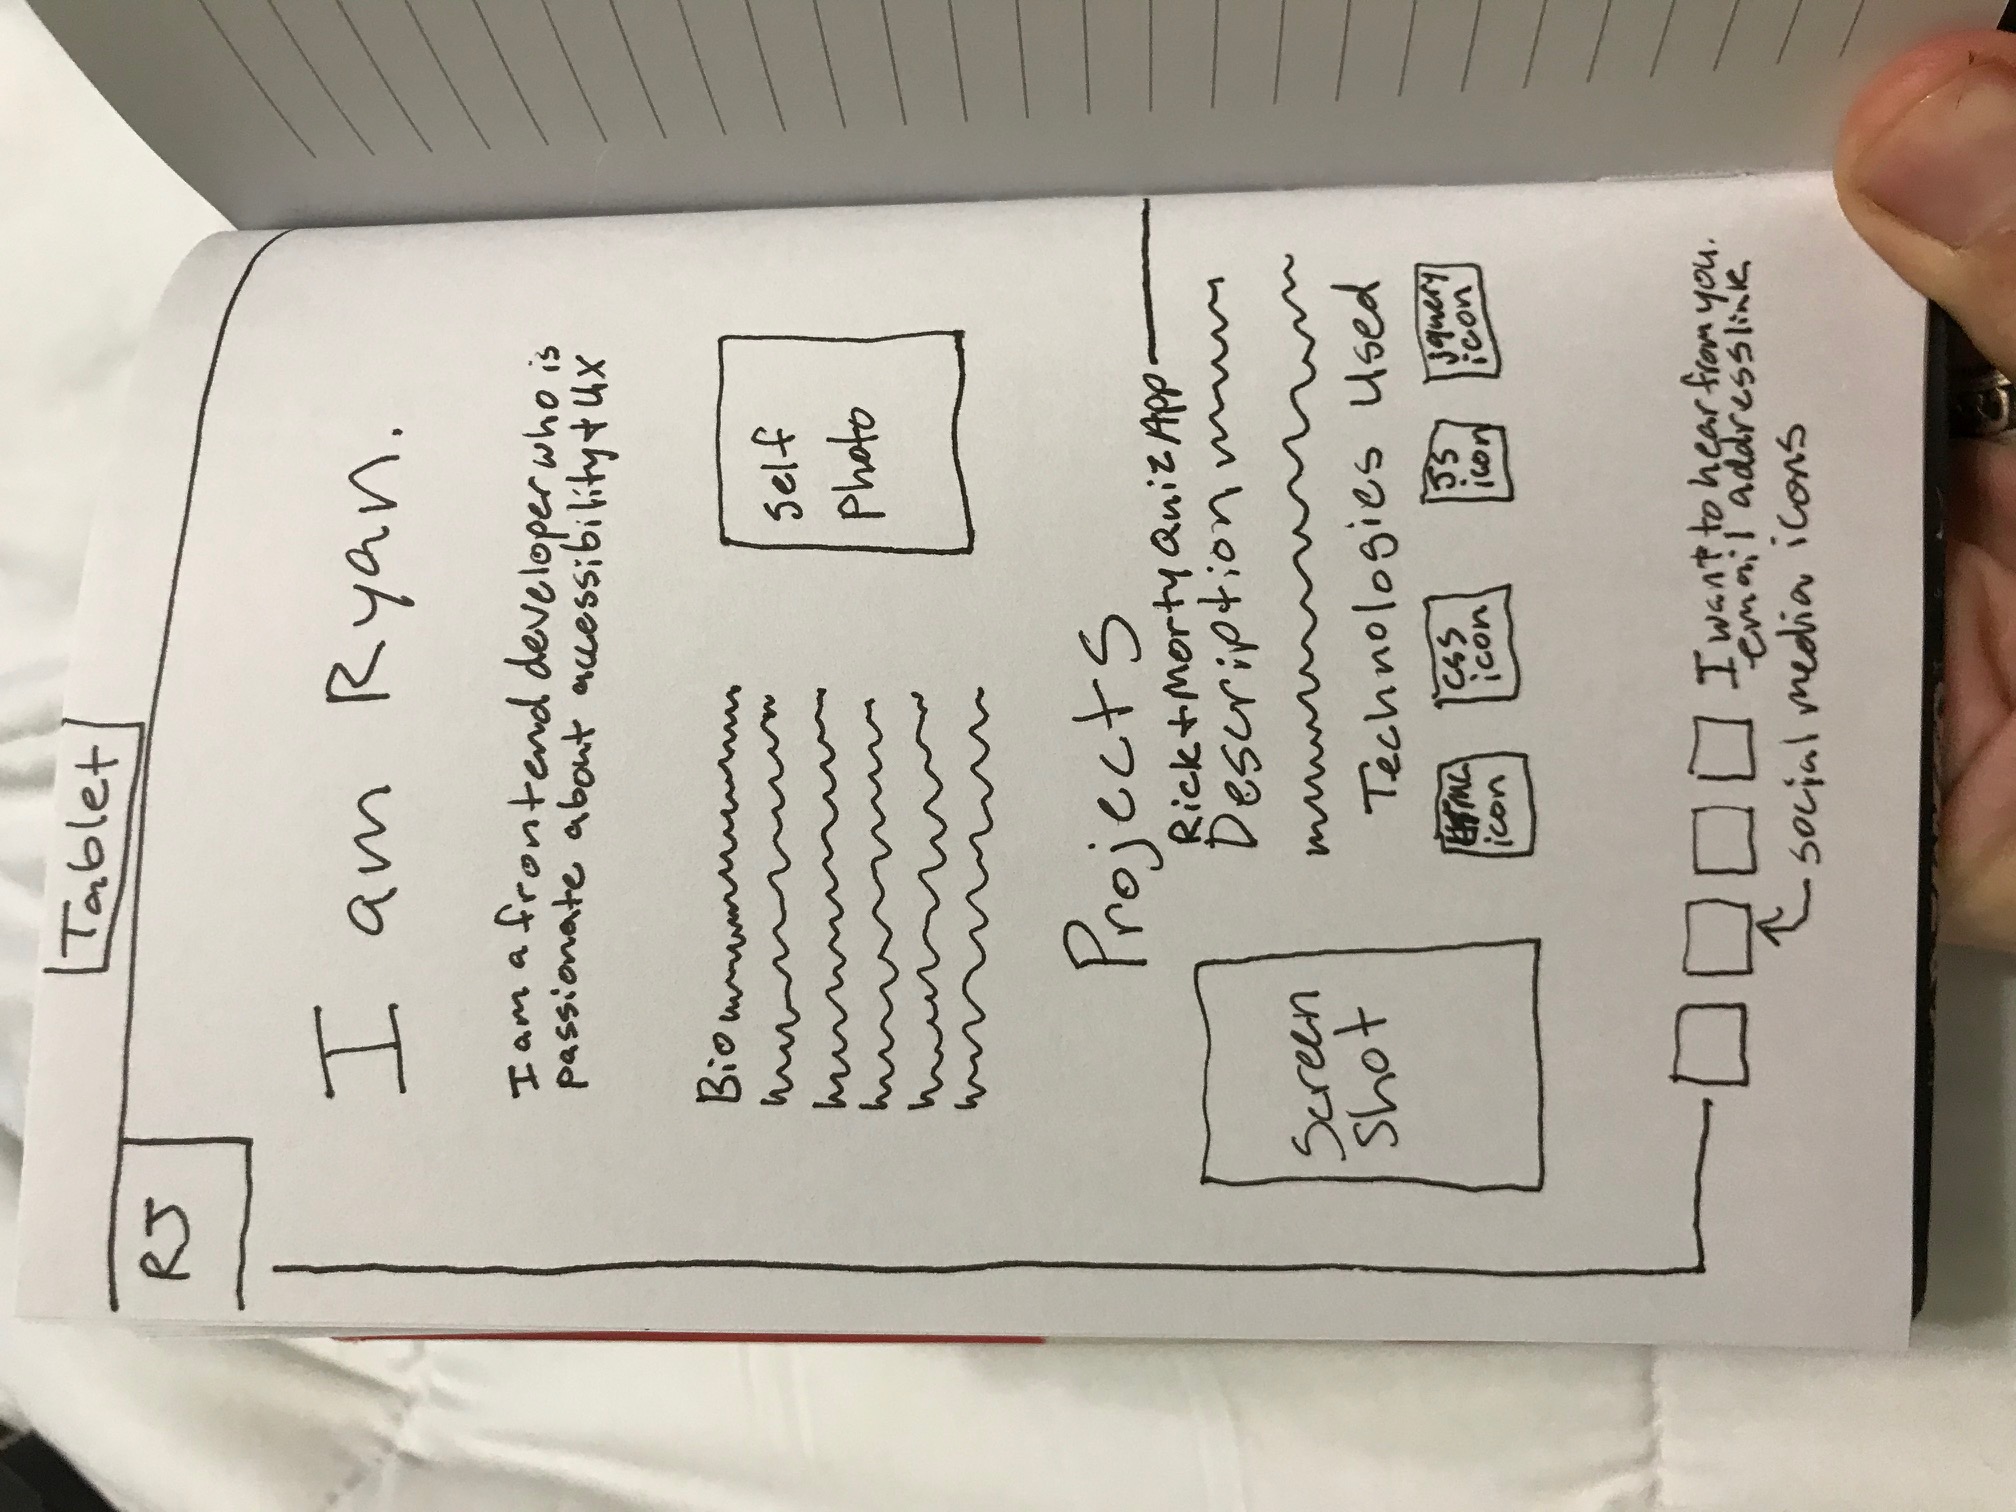 Tablet
RJ
I am Ryan.
I am a frontend developer who is
passionate about accessibility + UX
Bio
Self
Photo
Projects
Rick + Morty Quiz App
Description
Screen
Shot
Technologies Used
HTML
icon
CSS
icon
JS
icon
jquery
icon
I want to hear from you.
email address link
social media icons